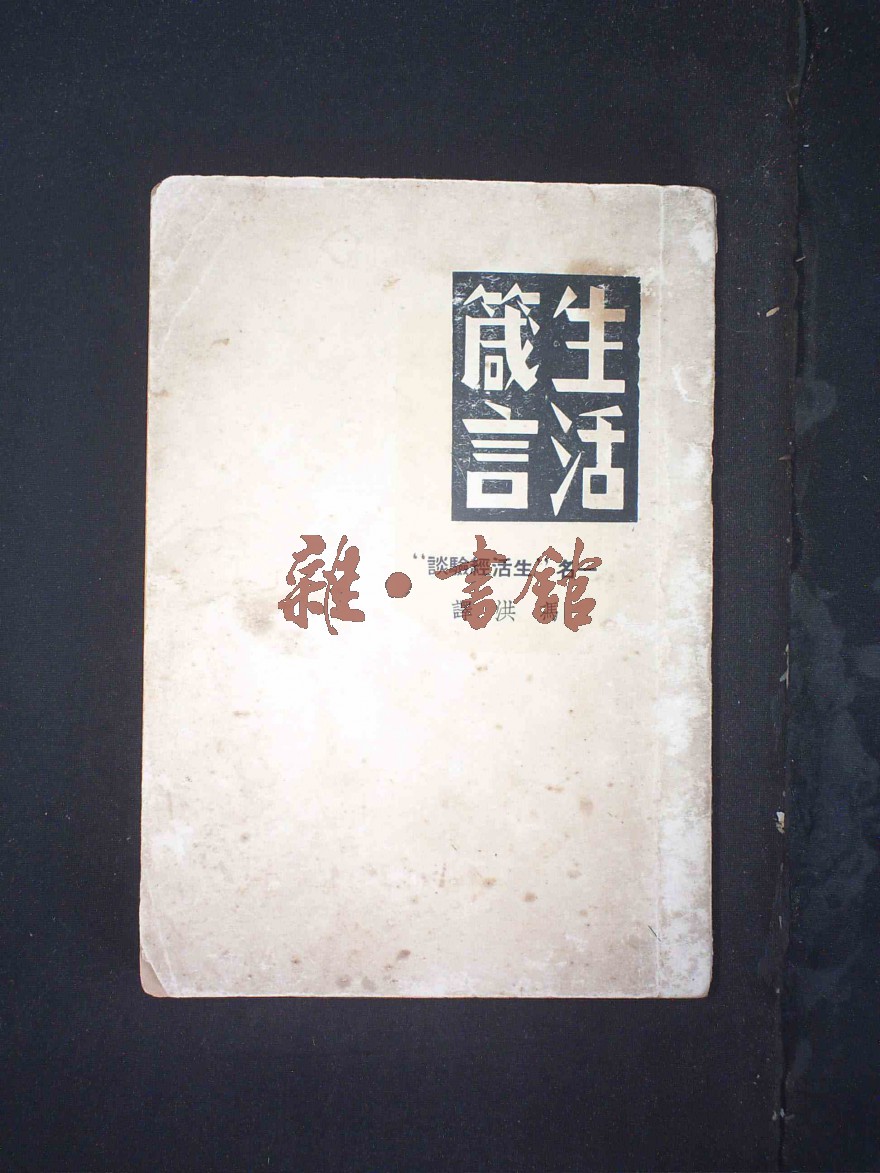 生活
箴言
一名“生活經驗談”
洪 譯
雜·書館